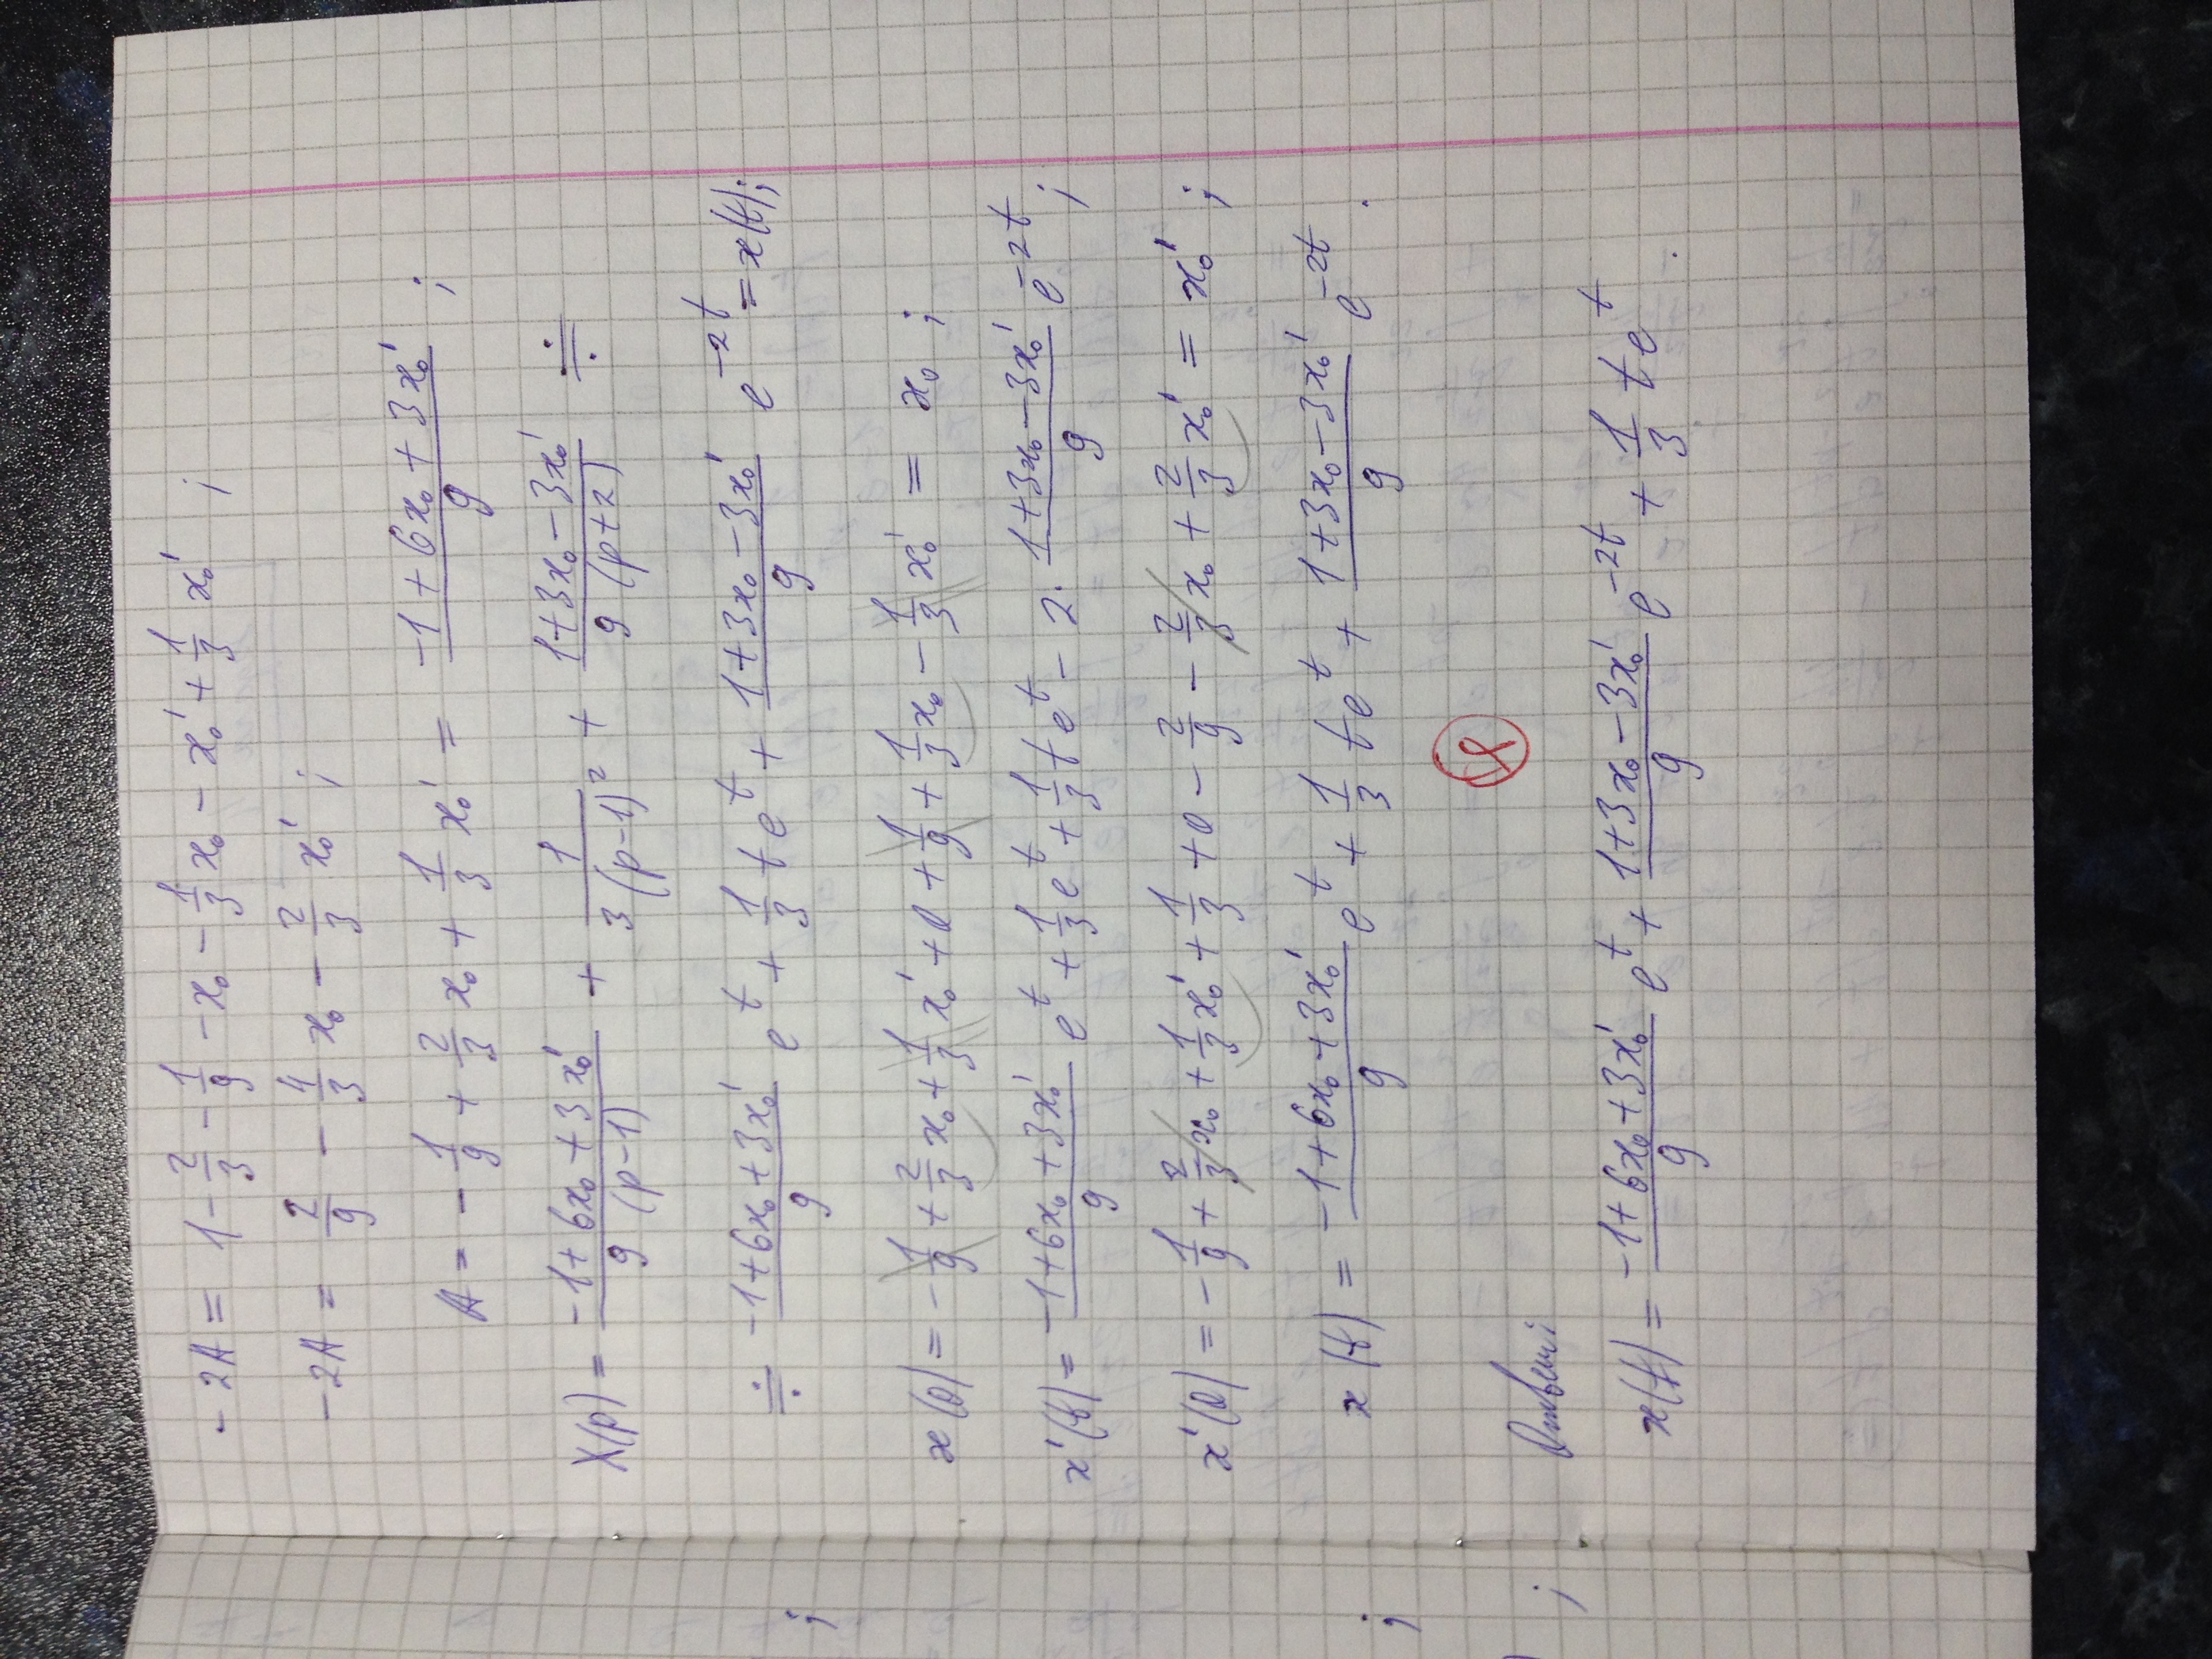 -2A = 1 - 2/3 - 1/9 - x₀ - 1/3 x₀ - x₀' + 1/3 x₀' ;
-2A = 2/9 - 4/3 x₀ - 2/3 x₀' ;
A = - 1/9 + 2/3 x₀ + 1/3 x₀' = (-1 + 6x₀ + 3x₀')/9 ;
X(p) = (-1 + 6x₀ + 3x₀')/(9(p-1)) + 1/(3(p-1)²) + (1 + 3x₀ - 3x₀')/(9(p+2)) ≓
≓ (-1 + 6x₀ + 3x₀')/9 e^t + 1/3 t e^t + (1 + 3x₀ - 3x₀')/9 e^(-2t) = x(t);
x(0) = - 1/9 + 2/3 x₀ + 1/3 x₀' + 0 + 1/9 + 1/3 x₀ - 1/3 x₀' = x₀ ;
x'(t) = (-1 + 6x₀ + 3x₀')/9 e^t + 1/3 e^t + 1/3 t e^t - 2 · (1 + 3x₀ - 3x₀')/9 e^(-2t) ;
x'(0) = - 1/9 + 2/3 x₀ + 1/3 x₀' + 1/3 + 0 - 2/9 - 2/3 x₀ + 2/3 x₀' = x₀' ;
x(t) = (-1 + 6x₀ + 3x₀')/9 e^t + 1/3 t e^t + (1 + 3x₀ - 3x₀')/9 e^(-2t) .
Ответ:
x(t) = (-1 + 6x₀ + 3x₀')/9 e^t + (1 + 3x₀ - 3x₀')/9 e^(-2t) + 1/3 t e^t .